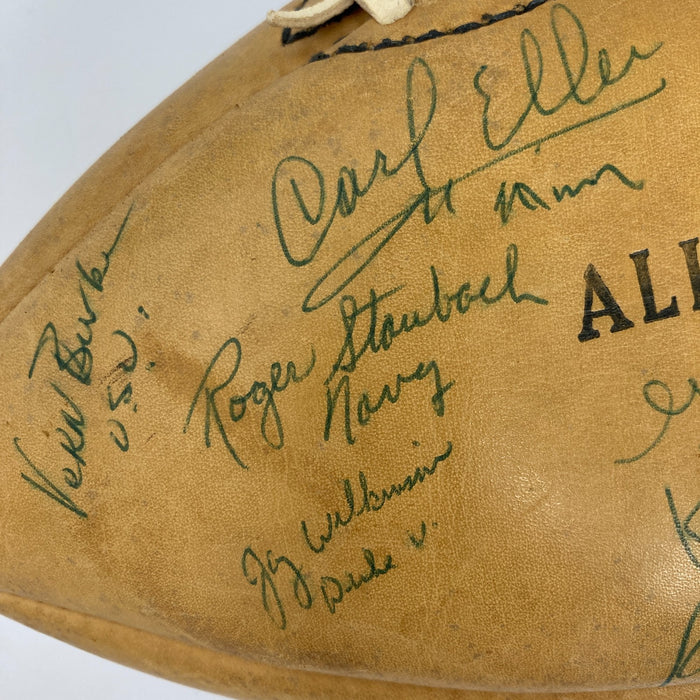 Carl Eller
Minn
ALL
Roger Staubach
Navy
Vern Burke
O.S.U.
Jay Wilkinson
Duke U.